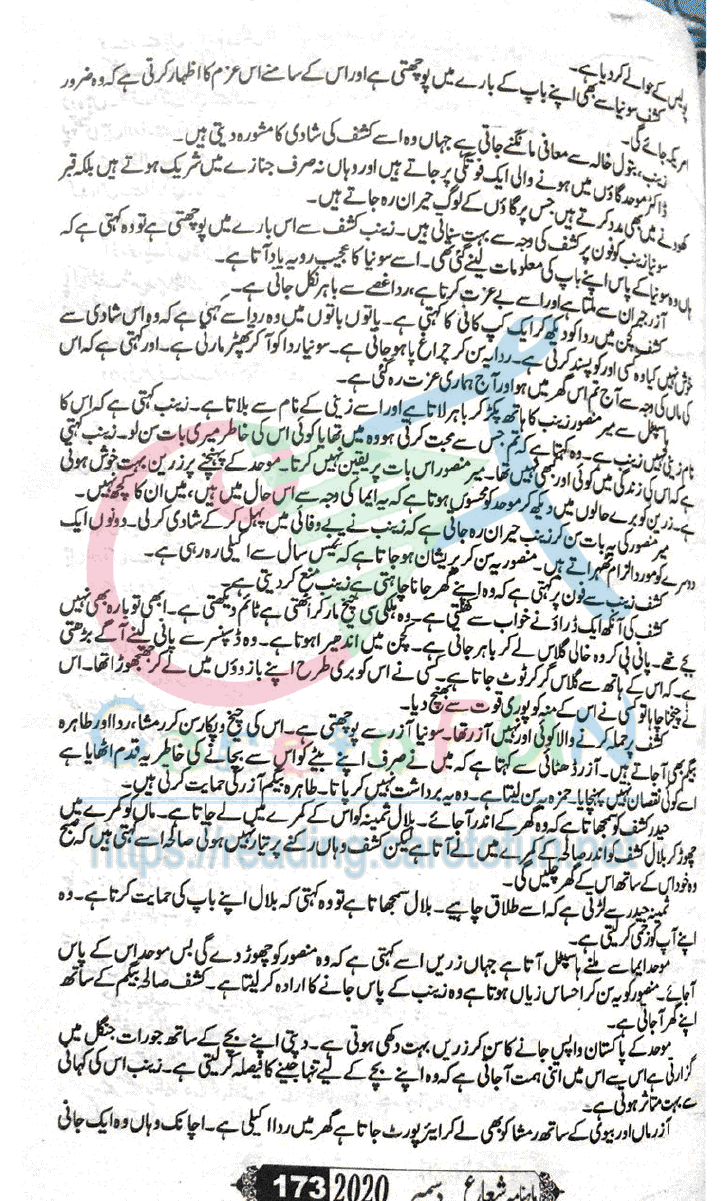 پولیس کے حوالے کر دیا ہے۔
کشف سونیا سے بھی اپنے باپ کے بارے میں پوچھتی ہے اور اس کے سامنے اس عزم کا اظہار کرتی ہے کہ وہ ضرور
امریکہ جائے گی۔
زینب، بتول خالہ سے معافی مانگنے جاتی ہے جہاں وہ اسے کشف کی شادی کا مشورہ دیتی ہیں۔
ڈاکٹر موحد گاؤں میں ہونے والی ایک فوتگی پر جاتے ہیں اور وہاں نہ صرف جنازے میں شریک ہوتے ہیں بلکہ قبر
کھودنے میں بھی مدد کرتے ہیں۔ جس پر گاؤں کے لوگ حیران رہ جاتے ہیں۔
سونیا زینب کو فون پر کشف کی وجہ سے بہت سناتی ہیں۔ زینب کشف سے اس بارے میں پوچھتی ہے تو وہ کہتی ہے کہ
ہاں وہ سونیا کے پاس اپنے باپ کی معلومات لینے گئی تھی۔ اسے سونیا کا عجیب رویہ یاد آتا ہے۔
آزر جبران سے ملتا ہے اور اسے بے عزت کرتا ہے، ردا غصے سے باہر نکل جاتی ہے۔
کشف کچن میں ردا کو دیکھ کر ایک کپ کافی کا کہتی ہے۔ باتوں باتوں میں وہ ردا سے کہتی ہے کہ وہ اس شادی سے
خوش نہیں کیا وہ کسی اور کو پسند کرتی ہے۔ ردا یہ سن کر چراغ پا ہو جاتی ہے۔ سونیا ردا کو آ کر تھپڑ مارتی ہے۔ اور کہتی ہے کہ اس
کی ماں کی وجہ سے آج تم اس گھر میں ہو اور آج ہماری عزت رہ گئی ہے۔
ہاسپٹل سے میر منصور زینب کا ہاتھ پکڑ کر باہر لاتا ہے اور اسے زینی کے نام سے بلاتا ہے۔ زینب کہتی ہے کہ اس کا
نام زینی نہیں زینب ہے۔ وہ کہتا ہے کہ تم جس سے محبت کرتی ہو وہ میں تھا یا کوئی اس کی خاطر میری بات سن لو۔ زینب کہتی
ہے کہ اس کی زندگی میں کوئی اور بھی نہیں تھا۔ میر منصور اس بات پر یقین نہیں کرتا۔ موحد کے پہنچنے پر زرین بہت خوش ہوتی
ہے۔ زرین کو برے حالوں میں دیکھ کر موحد کو محسوس ہوتا ہے کہ یہ ایما کی وجہ سے اس حال میں ہیں، میں ان کا کچھ نہیں۔
میر منصور کی یہ بات سن کر زینب حیران رہ جاتی ہے کہ زینب نے بے وفائی میں پہل کر کے شادی کر لی۔ دونوں ایک
دوسرے کو مورد الزام ٹھہراتے ہیں۔ منصور یہ سن کر پریشان ہو جاتا ہے کہ تیس سال سے اکیلی رہ رہی ہے۔
کشف زینب سے فون پر کہتی ہے کہ وہ اپنے گھر جانا چاہتی ہے زینب منع کر دیتی ہے۔
کشف کی آنکھ ایک ڈراؤنے خواب سے کھلتی ہے۔ وہ ہلکی سی چیخ مار کر اٹھتی ہے ٹائم دیکھتی ہے۔ ابھی تو بارہ بھی نہیں
بجے تھے۔ پانی پی کر وہ خالی گلاس لے کر باہر جاتی ہے۔ کچن میں اندھیرا ہوتا ہے۔ وہ ڈسپنسر سے پانی لینے آگے بڑھتی
ہے کہ اس کے ہاتھ سے گلاس گر کر ٹوٹ جاتا ہے۔ کسی نے اس کو بری طرح اپنے بازوؤں میں لے کر جھنجھوڑا تھا۔ اس
نے چیخنا چاہا تو کسی نے اس کے منہ کو پوری قوت سے بھینچ دیا۔
کشف پر حملہ کرنے والا کوئی اور نہیں آزر تھا۔ سونیا آزر سے پوچھتی ہے۔ اس کی چیخ و پکار سن کر رمشا، ردا اور طاہرہ
بیگم بھی آ جاتے ہیں۔ آزر ڈھٹائی سے کہتا ہے کہ میں نے صرف اپنے بیٹے کو اس سے بچانے کی خاطر یہ قدم اٹھایا ہے
اسے کوئی نقصان نہیں پہنچایا۔ حمزہ یہ سن لیتا ہے۔ وہ یہ برداشت نہیں کر پاتا۔ طاہرہ بیگم آزر کی حمایت کرتی ہیں۔
حیدر کشف کو سمجھاتا ہے کہ وہ گھر کے اندر آ جائے۔ بلال ثمینہ کو اس کے کمرے میں لے جاتا ہے۔ ماں کو کمرے میں
چھوڑ کر بلال کشف کو اندر صالحہ کے کمرے میں لے آتا ہے لیکن کشف وہاں رکنے پر تیار نہیں ہوتی صالحہ اسے کہتی ہیں کہ صبح
وہ خود اس کے ساتھ اس کے گھر چلیں گی۔
ثمینہ حیدر سے لڑتی ہے کہ اسے طلاق چاہیے۔ بلال سمجھاتا ہے تو وہ کہتی کہ بلال اپنے باپ کی حمایت کرتا ہے۔ وہ
اپنے آپ کو زخمی کر لیتی ہے۔
موحد ایما سے ملنے ہاسپٹل آتا ہے جہاں زریں اسے کہتی ہے کہ وہ منصور کو چھوڑ دے گی بس موحد اس کے پاس
آ جائے۔ منصور کو یہ سن کر احساس زیاں ہوتا ہے وہ زینب کے پاس جانے کا ارادہ کر لیتا ہے۔ کشف صالحہ بیگم کے ساتھ
اپنے گھر آ جاتی ہے۔
موحد کے پاکستان واپس جانے کا سن کر زریں بہت دکھی ہوتی ہے۔ دپتی اپنے بچے کے ساتھ جو رات جنگل میں
گزارتی ہے اس سے اس میں اتنی ہمت آ جاتی ہے کہ وہ اپنے بچے کے لیے تنہا جینے کا فیصلہ کر لیتی ہے۔ زینب اس کی کہانی
سے بہت متاثر ہوتی ہے۔
آزر ماں اور بیوی کے ساتھ رمشا کو بھی لے کر ایئر پورٹ جاتا ہے گھر میں ردا اکیلی ہے۔ اچانک وہاں وہ ایک جانی
ماہنامہ شعاع دسمبر 2020 173
CaretoFUN
https://reading.caretofun.net